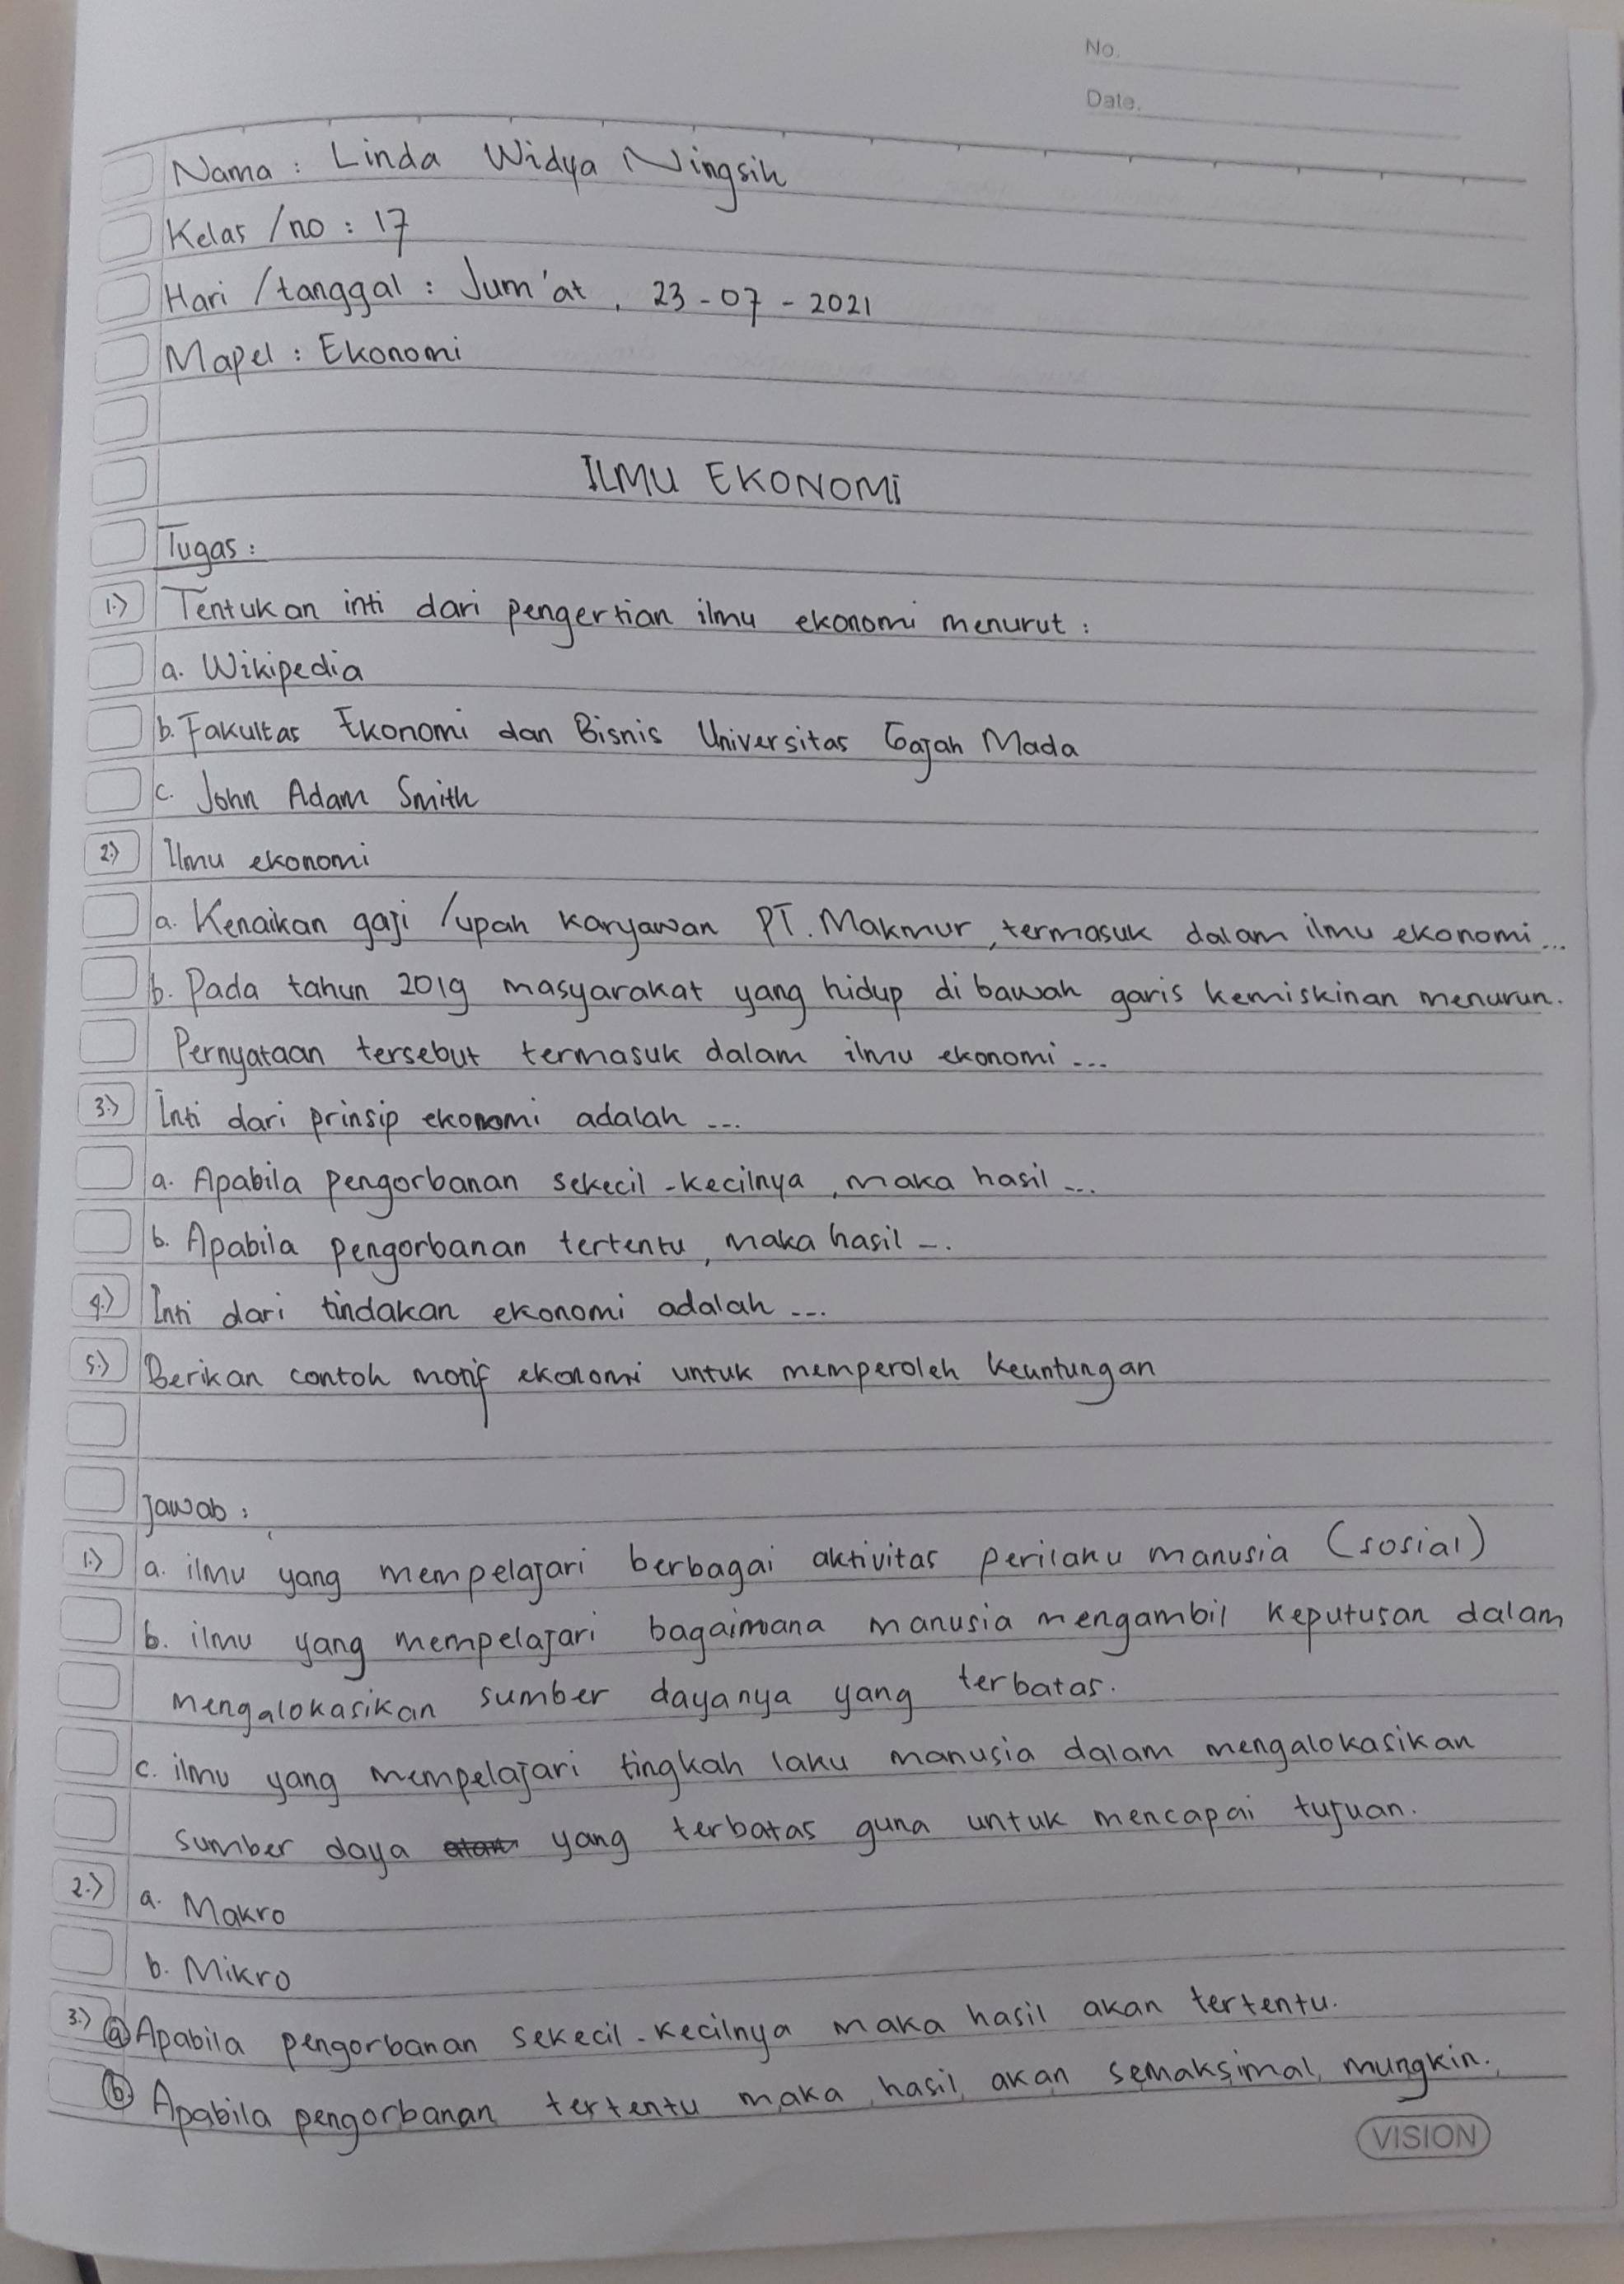 No.
Date.
Nama : Linda Widya Ningsih
Kelas /no : 17
Hari /tanggal : Jum'at , 23 - 07 - 2021
Mapel : Ekonomi
ILMU EKONOMI
Tugas :
1.) Tentukan inti dari pengertian ilmu ekonomi menurut :
a. Wikipedia
b. Fakultas Ekonomi dan Bisnis Universitas Gajah Mada
c. John Adam Smith
2.) Ilmu ekonomi
a. Kenaikan gaji /upah karyawan PT. Makmur, termasuk dalam ilmu ekonomi ...
b. Pada tahun 2019 masyarakat yang hidup di bawah garis kemiskinan menurun.
Pernyataan tersebut termasuk dalam ilmu ekonomi ...
3.) Inti dari prinsip ekonomi adalah ...
a. Apabila pengorbanan sekecil-kecilnya, maka hasil ...
b. Apabila pengorbanan tertentu, maka hasil ...
4.) Inti dari tindakan ekonomi adalah ...
5.) Berikan contoh motif ekonomi untuk memperoleh keuntungan
Jawab :
1.) a. ilmu yang mempelajari berbagai aktivitas perilaku manusia (sosial)
b. ilmu yang mempelajari bagaimana manusia mengambil keputusan dalam
mengalokasikan sumber dayanya yang terbatas.
c. ilmu yang mempelajari tingkah laku manusia dalam mengalokasikan
sumber daya yang terbatas guna untuk mencapai tujuan.
2.) a. Makro
b. Mikro
3.) a Apabila pengorbanan sekecil-kecilnya maka hasil akan tertentu.
b. Apabila pengorbanan tertentu maka hasil akan semaksimal mungkin.
VISION